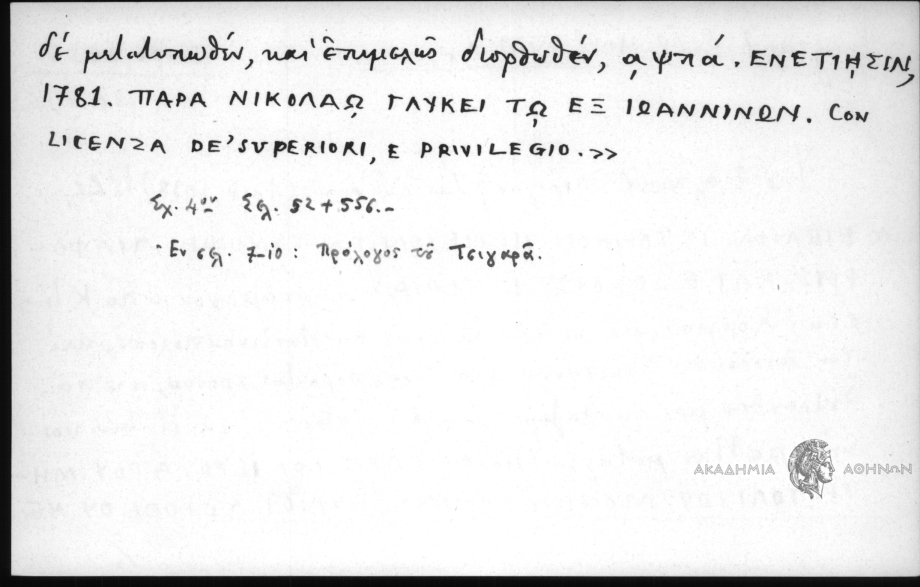 δέ μετατυπωθέν, καὶ ἐπιμελῶς διορθωθέν, ͵αψπά. ΕΝΕΤΙΗΣΙΝ,
1781. ΠΑΡΑ ΝΙΚΟΛΑῼ ΓΛΥΚΕΙ Τῼ ΕΞ ΙΩΑΝΝΙΝΩΝ. CON
LICENZA DE' SUPERIORI, E PRIVILEGIO.>>
Σχ. 4ον Σελ. 52 + 556.-
- Εν σελ. 7-10: Πρόλογος τοῦ Τσιγαρᾶ.
ΑΚΑΔΗΜΙΑ ΑΘΗΝΩΝ